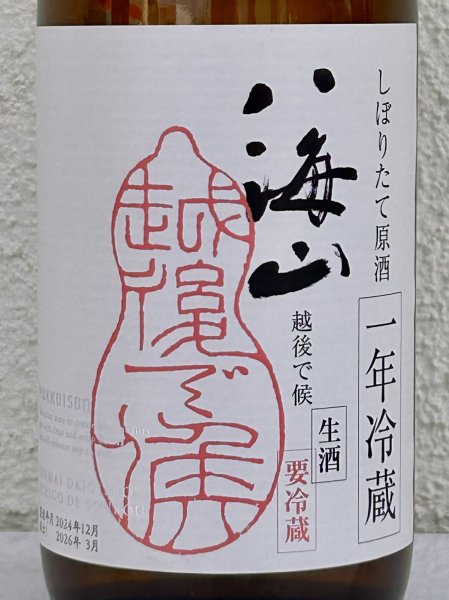 しぼりたて原酒
一年冷蔵
八海山
越後で候
生酒
要冷蔵
越後で候
2024年12月
2026年 3月